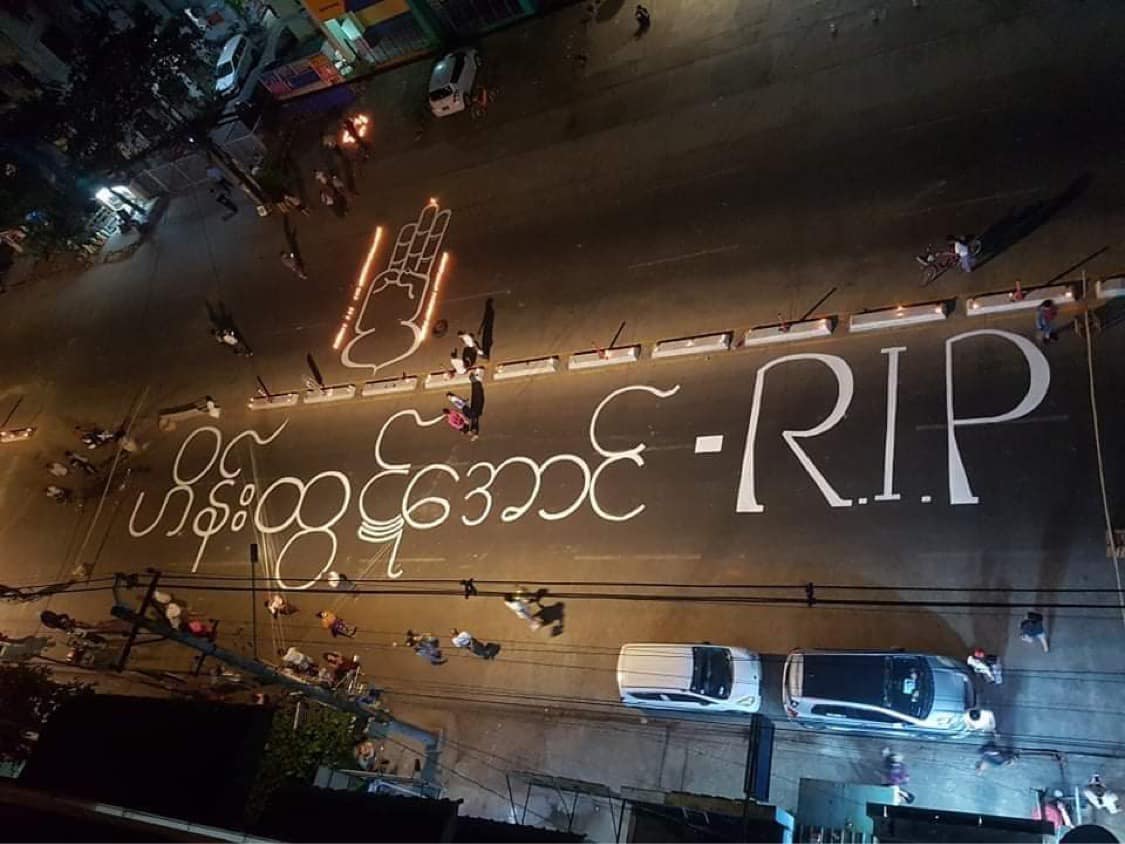 ဟိန်းထွဋ်အောင် - R.I.P